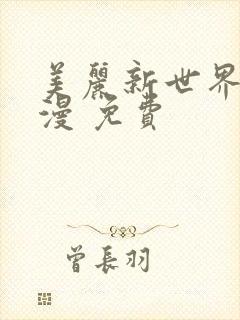 美麗新世界
漫 免費
曾長羽